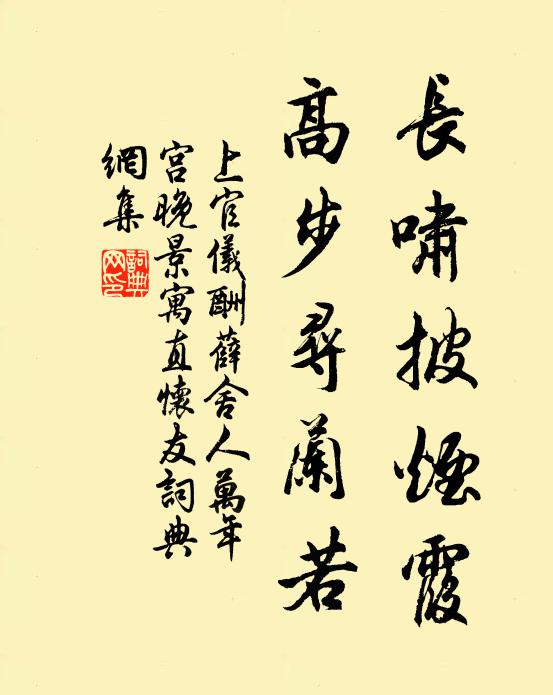 長嘯披煙霞
高步尋蘭若
上官儀酬薛舍人萬年
宮晚景寓直懷友詞典
網集
詞典
网印